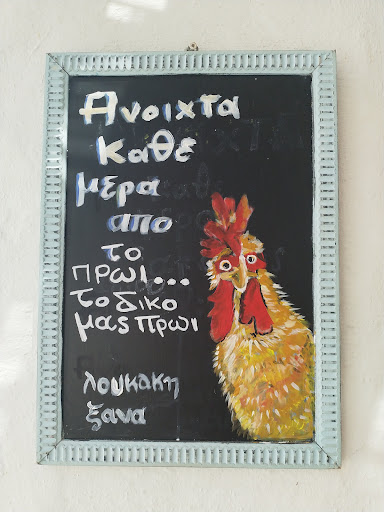 Ανοιχτα
Καθε
μερα
απο
το
πρωι...
το δικο
μας πρωι
λουκακη
ξανα